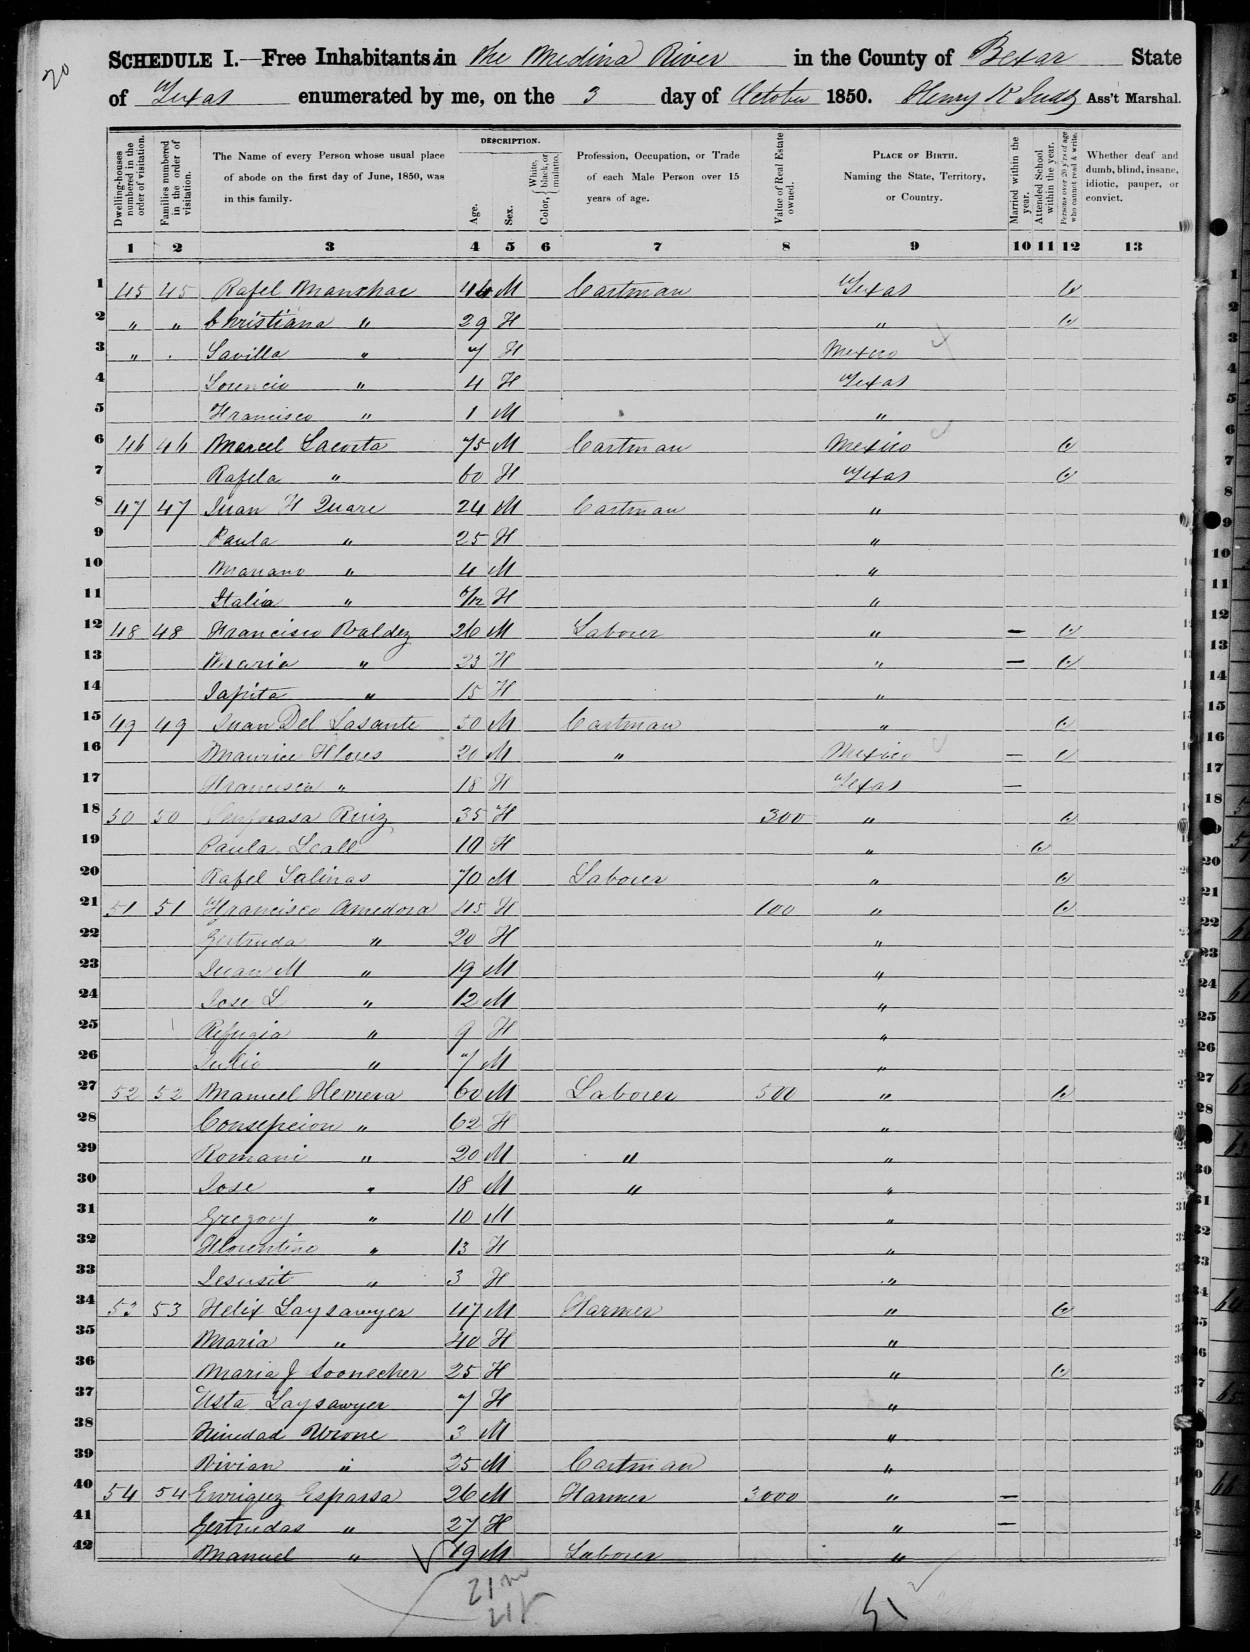 20
SCHEDULE I.—Free Inhabitants in the Medina River in the County of Bexar State
of Texas enumerated by me, on the 3 day of October 1850. Henry K Judd Ass't Marshal.
Dwelling-houses numbered in the order of visitation.
Families numbered in the order of visitation.
The Name of every Person whose usual place of abode on the first day of June, 1850, was in this family.
DESCRIPTION.
Age.
Sex.
Color, { White, black, or mulatto.
Profession, Occupation, or Trade of each Male Person over 15 years of age.
Value of Real Estate owned.
PLACE OF BIRTH. Naming the State, Territory, or Country.
Married within the year.
Attended School within the year.
Persons over 20 y'rs of age who cannot read & write.
Whether deaf and dumb, blind, insane, idiotic, pauper, or convict.
1 2 3 4 5 6 7 8 9 10 11 12 13
1 45 45 Rafel Manshac 44 M Cartman Texas
2 " " Christiana " 29 F "
3 " " Savilla " 7 F Mexico
4 Lorencio " 4 F Texas
5 Francisco " 1 M "
6 46 46 Marcel Lacosta 75 M Cartman Mexico
7 Rafela " 60 F Texas
8 47 47 Juan F Quare 24 M Cartman "
9 Paula " 25 F "
10 Mariano " 4 M "
11 Italia " /12 F "
12 48 48 Francisco Baldez 26 M Laborer " –
13 Maria " 23 F " –
14 Japita " 15 F "
15 49 49 Juan Del Lasante 50 M Cartman "
16 Maurice Flores 20 M " Mexico –
17 Francisca " 18 F Texas –
18 50 50 Ruiz 35 F 300 "
19 Paula Leall 10 F "
20 Rafel Salinas 70 M Laborer "
21 51 51 Francisco Amedora 45 F 100 "
22 Gertruda " 20 F "
23 Juan M " 19 M "
24 Jose L " 12 M "
25 Refugia " 9 F "
26 Julio " 7 M "
27 52 52 Manuel Herrera 60 M Laborer 500 "
28 Consepcion " 62 F "
29 Romani " 20 M " "
30 Jose " 18 M " "
31 Gregory " 10 M "
32 Florentino " 13 F "
33 Jesusit " 3 F "
34 53 53 Felix Laysawyer 47 M Farmer "
35 Maria " 40 F "
36 Maria J 25 F "
37 Usta Laysawyer 7 F "
38 Urone 3 M "
39 Vivian " 25 M Cartman "
40 54 54 Enriquez Esparsa 26 M Farmer 3000 " –
41 Gertrudas " 27 F " –
42 Manuel " 19 M Laborer "
21 m
21 f